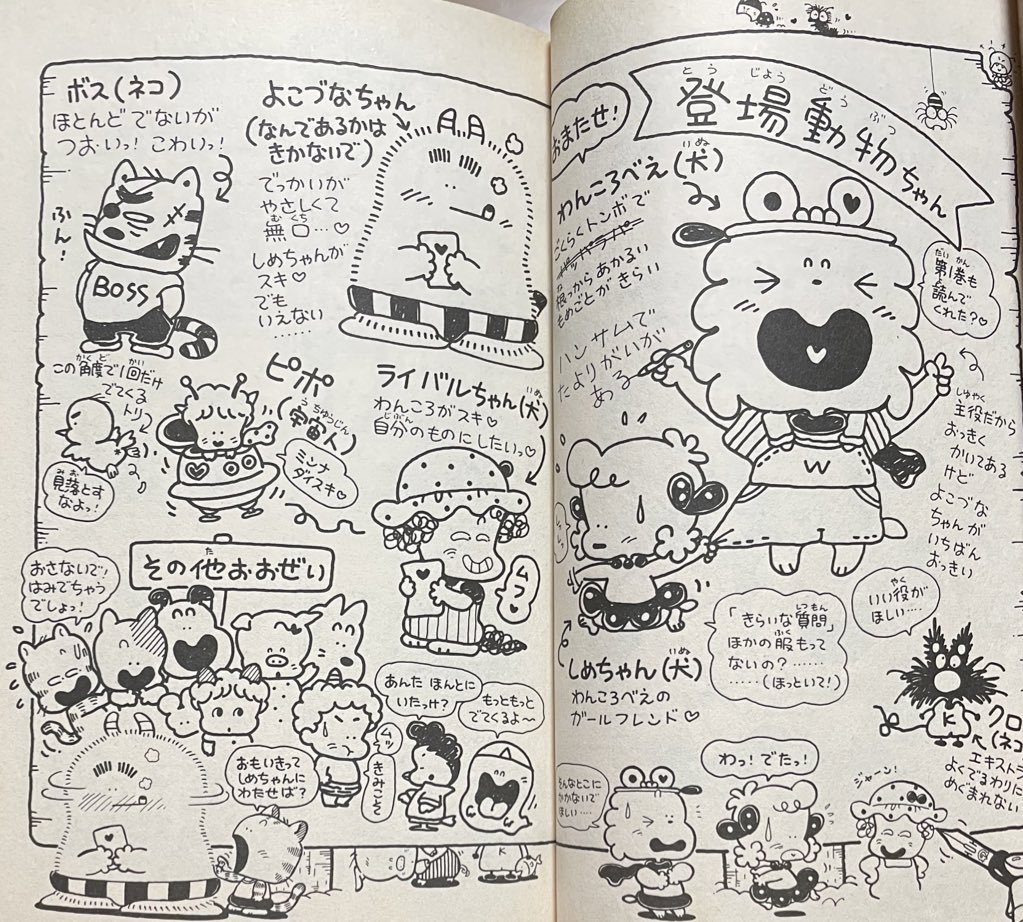 おまたせ！
登場動物ちゃん
とうじょうどうぶつ
わんころべえ(犬)
いぬ
ごくらくトンボで
根っからあかるい
もめごとがきらい
ハンサムで
たよりがいが
ある
第1巻も
だい かん
読んで
よ
くれた？♡
主役だから
しゅやく
おっきく
かいてある
けど
よこづな
ちゃんが
いちばん
おっきい
W
しめちゃん(犬)
いぬ
わんころべえの
ガールフレンド♡
「きらいな質問」
しつもん
ほかの服もって
ふく
ないの？……
……(ほっといて！)
いい役が
やく
ほしい…
K
クロ
(ネコ
エキストラ
よくでるわりに
めぐまれない
そんなとこに
かかないで
ほしい…
わっ！でたっ！
ジャーン！
ボス(ネコ)
ほとんどでないが
つおいっ！こわいっ！
ふん！
BOSS
よこづなちゃん
(なんであるかは
きかないで)
でっかいが
やさしくて
無口…♡
むくち
しめちゃんが
スキ♡
でも
いえない
……
この角度で1回だけ
かくど かい
でてくる
トリ
見落とす
みお
なよっ！
ピポ
(宇宙人)
うちゅうじん
ミンナ
ダイスキ♡
ライバルちゃん(犬)
いぬ
わんころがスキ♡
自分のものにしたいっ♡
じぶん
ムフ♡
その他おおぜい
た
おさないで！
はみでちゃう
でしょっ！
あんた ほんとに
いたっけ？
もっともっと
でてくるよ〜
ムッ
きみこそ
おもいきって
しめちゃんに
わたせば？
K